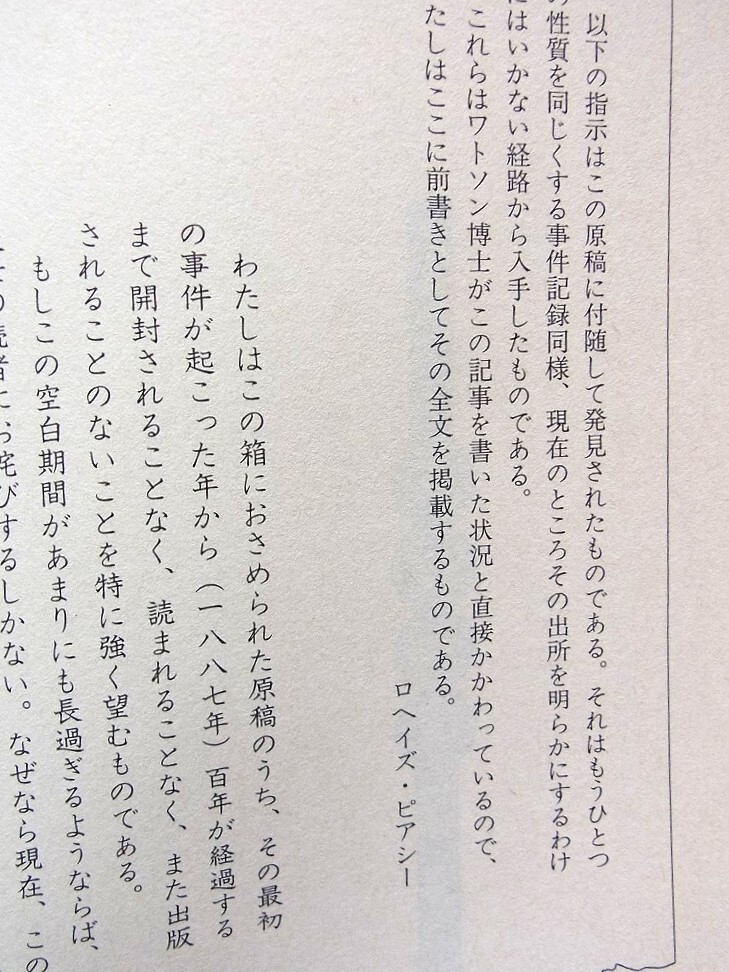 以下の指示はこの原稿に付随して発見されたものである。それはもうひとつ
の性質を同じくする事件記録同様、現在のところその出所を明らかにするわけ
にはいかない経路から入手したものである。
これらはワトソン博士がこの記事を書いた状況と直接かかわっているので、
たしはここに前書きとしてその全文を掲載するものである。
ロヘイズ・ピアシー
わたしはこの箱におさめられた原稿のうち、その最初
の事件が起こった年から（一八八七年）百年が経過する
まで開封されることなく、読まれることなく、また出版
されることのないことを特に強く望むものである。
もしこの空白期間があまりにも長過ぎるようならば、
の読者にお詫びするしかない。なぜなら現在、この